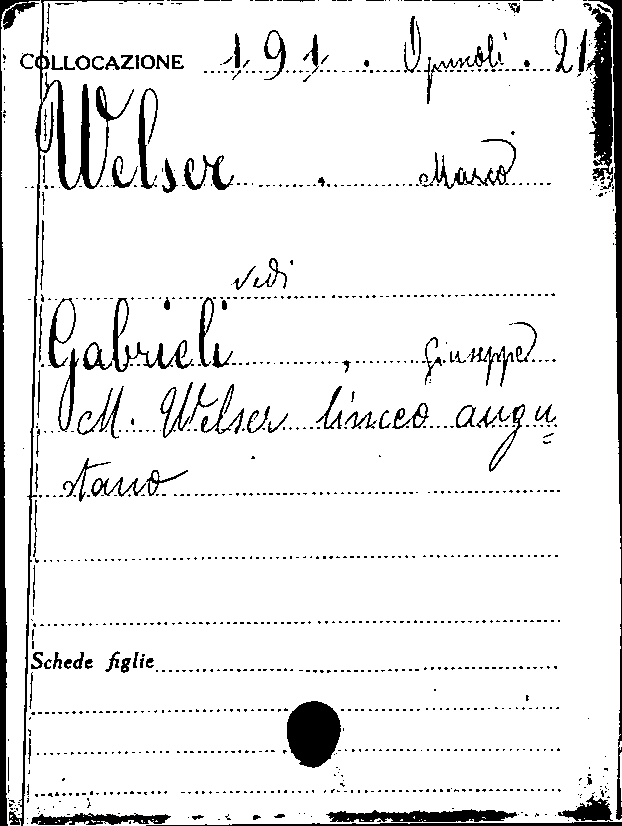 COLLOCAZIONE 191. Opuscoli. 21
Welser, Marco
vedi
Gabrieli, Giuseppe
M. Welser linceo augu=
stano
Schede figlie